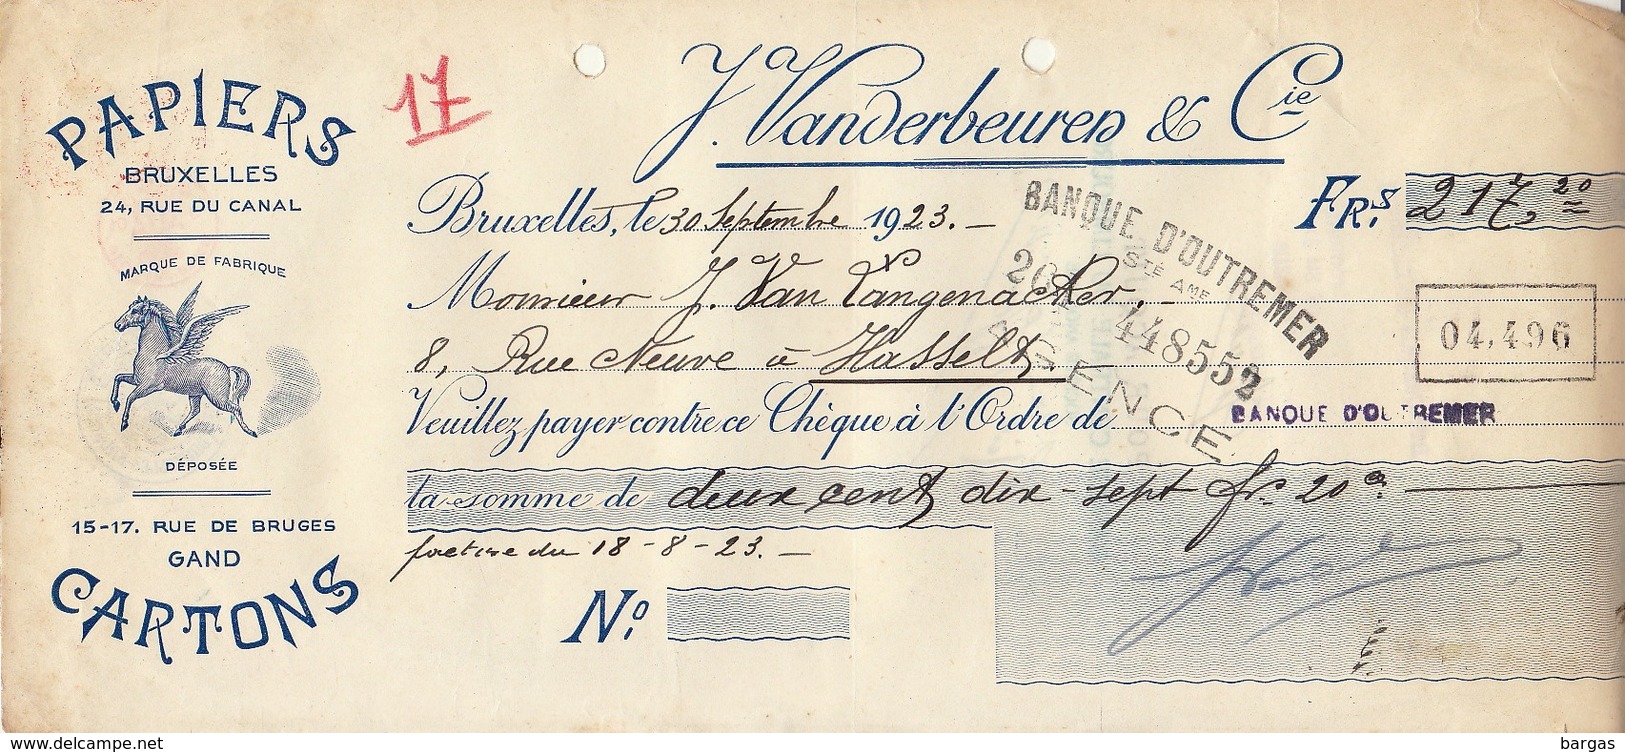 PAPIERS
BRUXELLES
24, RUE DU CANAL
MARQUE DE FABRIQUE
DÉPOSÉE
15-17. RUE DE BRUGES
GAND
CARTONS
17
J. Vanderbeuren & Cie
Bruxelles, le 30 Septembre 1923.-
FRS. 217,20
Monsieur J. Van Langenacker,
8, Rue Neuve à Hasselt.
Veuillez payer contre ce Chèque à l'Ordre de BANQUE D'OUTREMER
la somme de deux cent dix-sept frs 20 cs
facture du 18-8-23.-
No.
BANQUE D'OUTREMER
STÉ AME
448552
AGENCE
04.496
delcampe.net
bargas